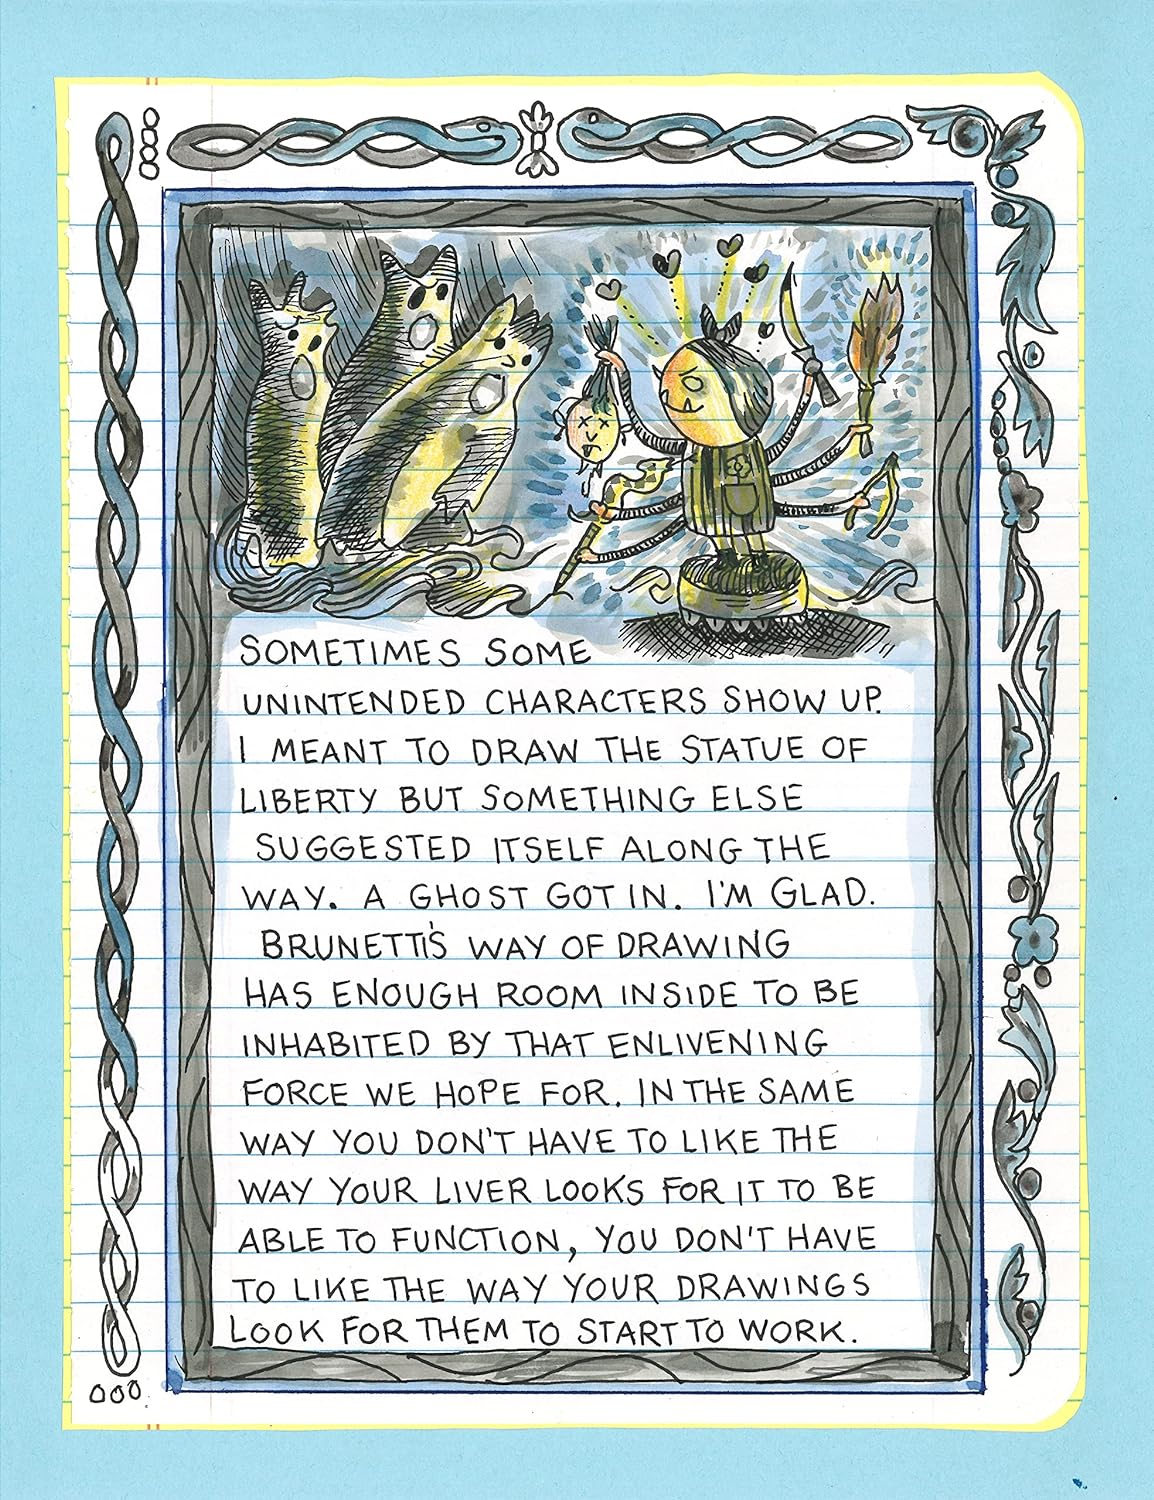 SOMETIMES SOME
UNINTENDED CHARACTERS SHOW UP.
I MEANT TO DRAW THE STATUE OF
LIBERTY BUT SOMETHING ELSE
SUGGESTED ITSELF ALONG THE
WAY. A GHOST GOT IN. I'M GLAD.
BRUNETTI'S WAY OF DRAWING
HAS ENOUGH ROOM INSIDE TO BE
INHABITED BY THAT ENLIVENING
FORCE WE HOPE FOR. IN THE SAME
WAY YOU DON'T HAVE TO LIKE THE
WAY YOUR LIVER LOOKS FOR IT TO BE
ABLE TO FUNCTION, YOU DON'T HAVE
TO LIKE THE WAY YOUR DRAWINGS
LOOK FOR THEM TO START TO WORK.